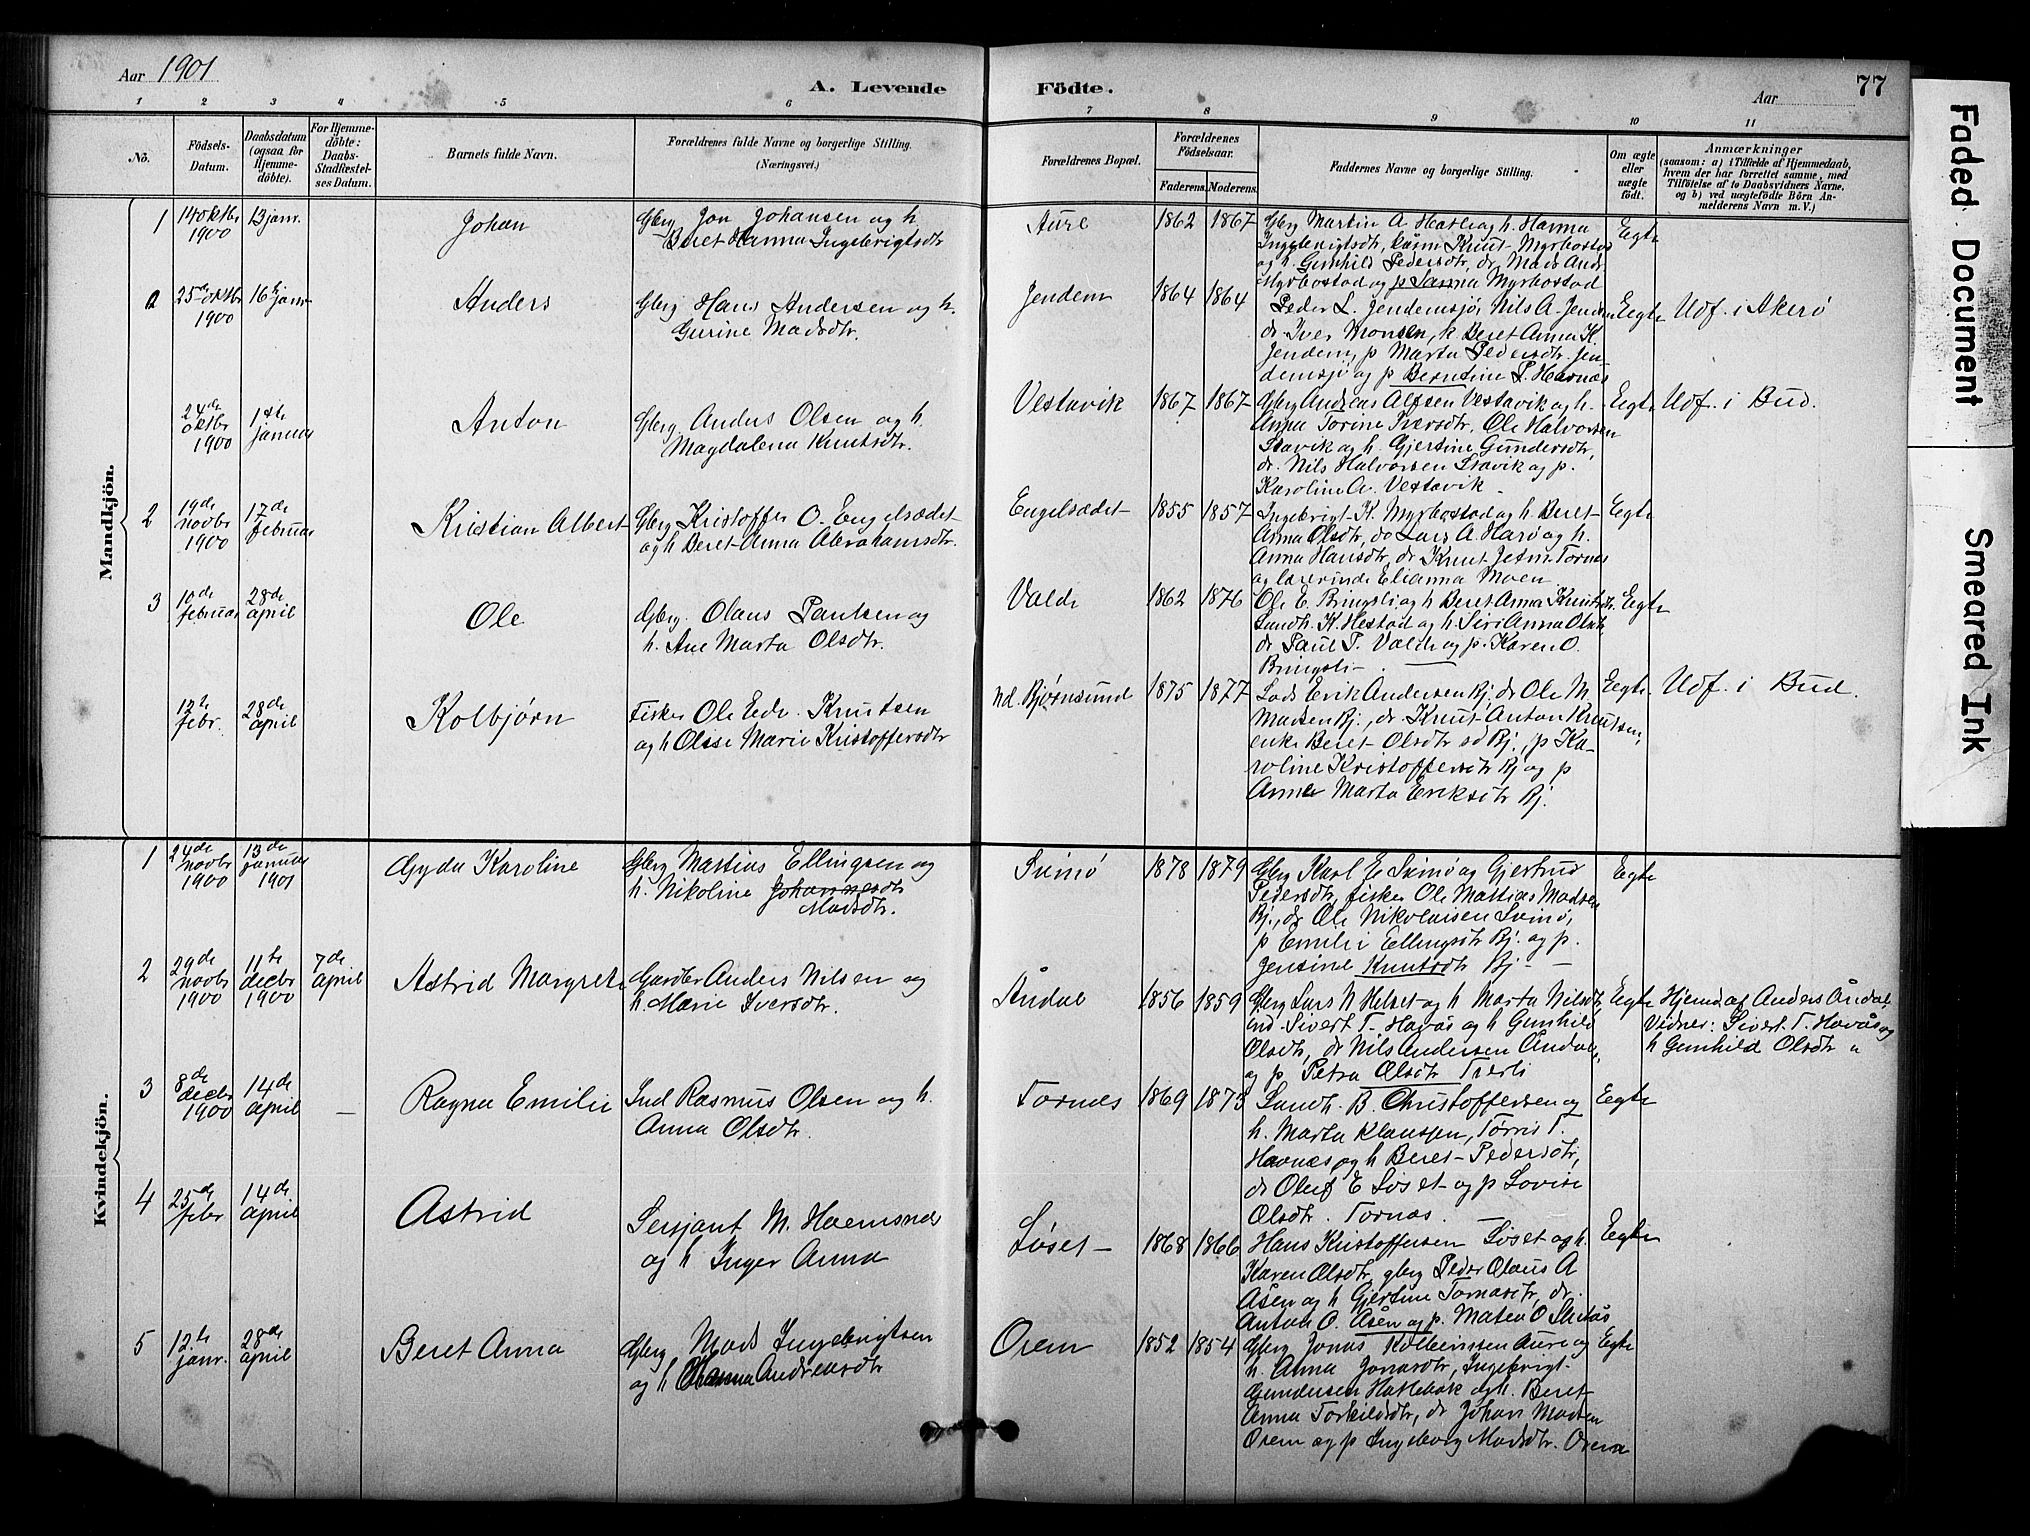 Aar 1901
A. Levende Födte.
Aar
77
1 2 3 4 5 6 7 8 9 10 11
No.
Födsels-Datum.
Daabsdatum (ogsaa for Hjemme-döbte).
For Hjemme-döbte: Daabs-Stadfæstel-ses Datum.
Barnets fulde Navn.
Forældrenes fulde Navne og borgerlige Stilling. (Næringsvei.)
Forældrenes Bopæl.
Forældrenes Födselsaar.
Faderens. Moderens.
Faddernes Navne og borgerlige Stilling.
Om ægte eller uægte födt.
Anmærkninger
(saasom: a) i Tilfælde af Hjemmedaab,
hvem der har forrettet samme, med
Tilföielse af to Daabsvidners Navne,
og b) ved uægtefödte Börn An-
melderens Navn m. V.)
Mandkjön.
1 14 oktbr 1900 13 jan. Johan
Gbrg Jon Johansen og h.
Beret Hanna Ingebrigtsdtr
Aure 1862 1867
Gbrg Martin A Hatle og h. Hanna
Ingebrigtsdtr, Knut Myrbostad
og h. Gunhild Pedersdtr, dr. Mads And.
Myrbostad og p Sanna Myrbostad
Egte
2 25de oktbr 1900 16 jan Anders
Gbrg Hans Andersen og h.
Gurine Madsdtr.
Jendem 1864 1864
Peder L. Jendemsjø, Nils A. Jendem
dr Iver Monsen, k Beret Anna K.
Jendem, p Marta Pedersdtr. Jen-
demsjø og p Berntine P. Harnæs
Egte Udf. i Akerø
24de oktbr 1900 1ste januar Anton
Gbrg. Anders Olsen og h
Magdalena Knutsdtr.
Vestavik 1867 1867
Gbrg Andreas Alfsen Vestavik og h.
Anna Torine Iversdtr. Ole Halvorsen
Stavik og h. Gjertine Gundersdtr,
dr. Nils Halvorsen Stavik og p.
Karoline A. Vestavik
Egte Udf. i Bud.
2 19de novbr 1900 17de februar Kristian Albert
Gbrg Kristoffer O. Engelsædet
og h Beret Anna Abrahamsdtr.
Engelsædet 1855 1857
Ingebrigt K. Myrbostad og h Beret
Anna Olsdtr, do Lars A. Harø og h.
Anna Hansdtr, dr Knut Tornes
og lærerinde Elianna Moen
Egte
3 10de februar 28de april Ole
Gbrg. Olaus Paulsen og
h. Ane Marta Olsdtr.
Valde 1862 1876
Ole E. Bringsli og h Beret Anna Knutsdtr.
Landh. K. Hestad og h Siri Anna Olsdtr,
dr Paul P. Valde og p. Karen O.
Bringsli
Egte
12te febr. 28de april Kolbjørn
Fisker Ole Edv. Knutsen
og h Olsse Marie Kristoffersdtr
nd. Bjørnsund 1875 1877
Lods Erik Andersen Bj, dr Ole M
Madsen Bj., dr. Knut Anton Knutsen,
enke Beret Olsdtr sd Bj. p Ka-
roline Kristoffersdtr Bj og p
Anne Marta Eriksdtr Bj.
Egte Udf. i Bud.
Kvindekjön.
1 24de novbr 1900 13de januar 1901 Gyda Karoline
Gbrg Martias Ellingsen og
h. Nikoline Johannesdtr
Madsdtr.
Svinø 1878 1879
Gbrg Karl E Svinø og Gjertrud
Pedersdtr, fisker Ole Mattias Madsen
Bj., dr Ole Nikolaisen Svinø,
p Emilie Ellingsdtr Bj. og p.
Jensine Knutsdtr Bj
Egte
2 29de novbr 1900 11te decbr 1900 7de april Astrid Margrete
Gardbr Anders Nilsen og
h. Marie Iversdtr.
Åndal 1856 1859
Gbrg Lars N Helset og h Marta Nilsdtr,
ind. Sivert T. Havås og h Gunhild
Olsdtr, dr Nils Andersen Åndal,
og p Petra Olsdtr Tverli
Egte
Hjemd. af Anders Åndal,
Vidner: Sivert T. Havås og
h Gunhild Olsdtr "
3 8de decbr 1900 14de april — Ragna Emilie
Ind Rasmus Olsen og h.
Anna Olsdtr.
Tornæs 1869 1873
Landh. B. Christoffersen og
h. Marta Klaussen, Tørris T.
Havnæs og h Beret Pedersdtr,
dr Oluf E Løset og p Lovise
Olsdtr. Tornæs.
Egte
4 25de febr 14de april Astrid
Sersjant M. Haemsnes
og h Inger Anna
Løset 1868 1866
Hans Kristoffersen Løset og h.
Karen Olsdtr, gbrg Peder Olaus A
Åsen og h Gjertine Tomasdtr, dr.
Anton O. Åsen og p. Maten O Skitås
Egte
5 12te janr. 28de april Beret Anna
Gbrg Mads Ingebrigtsen
og h Andreasdtr
Orem 1852 1854
Gbrg Jonas Kolbeinssen Aure og
h. Anna Jonasdtr, Ingebrigt
Gundersen Hatlebak og h. Beret
Anna Torkildsdtr, dr Johan Madsen
Orem og p Ingeborg Madsdtr. Orem
Egte
Faded Document
Smeared Ink